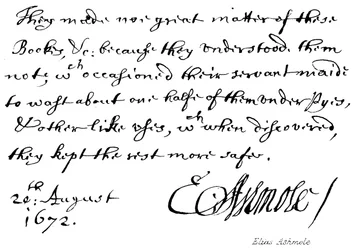 They made noe great matter of these
Bookes, &c: because they understood them
not; wch occasioned their servant maide
to wast about one halfe of them under Pyes,
& other like uses, wch when discovered,
they kept the rest more safe.
20th: August
1672.
E Ashmole
Elias Ashmole